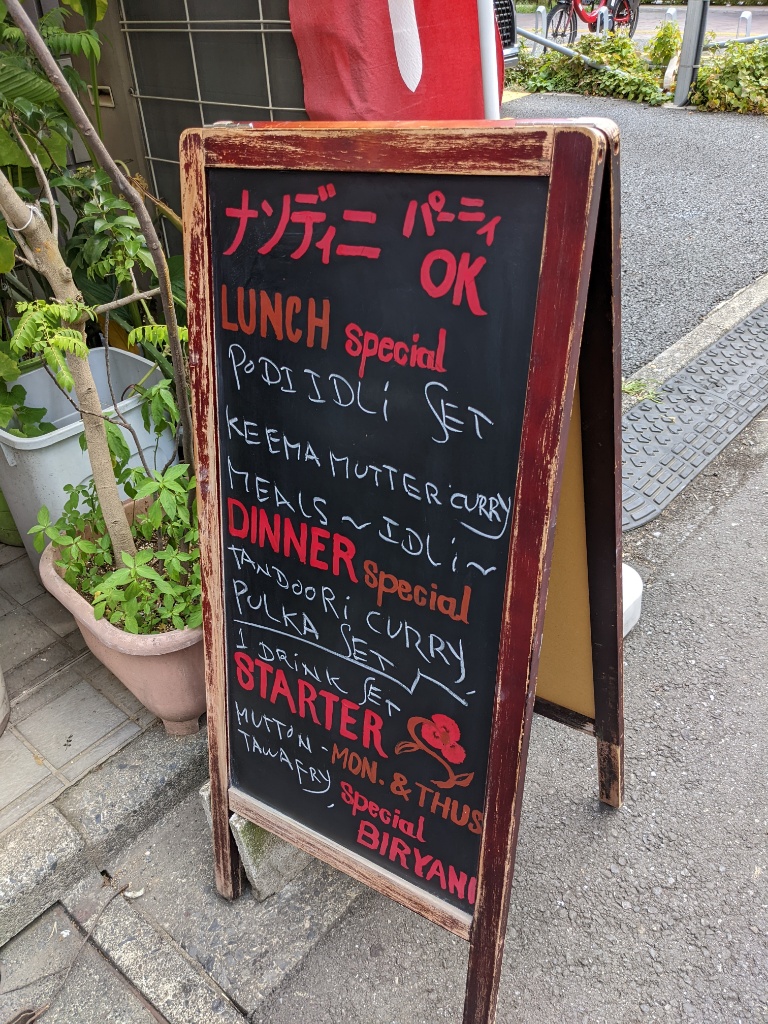 ナンディニ パーティ
OK
LUNCH special
PODI IDLi SET
KEEMA MUTTER CURRY
MEALS ~ IDLi ~
DINNER special
TANDOORi CURRY
PULKA SET
1 DRINK SET
STARTER
MUTTON -
TAWA FRY,
MON. & THUS
special
BIRYANI